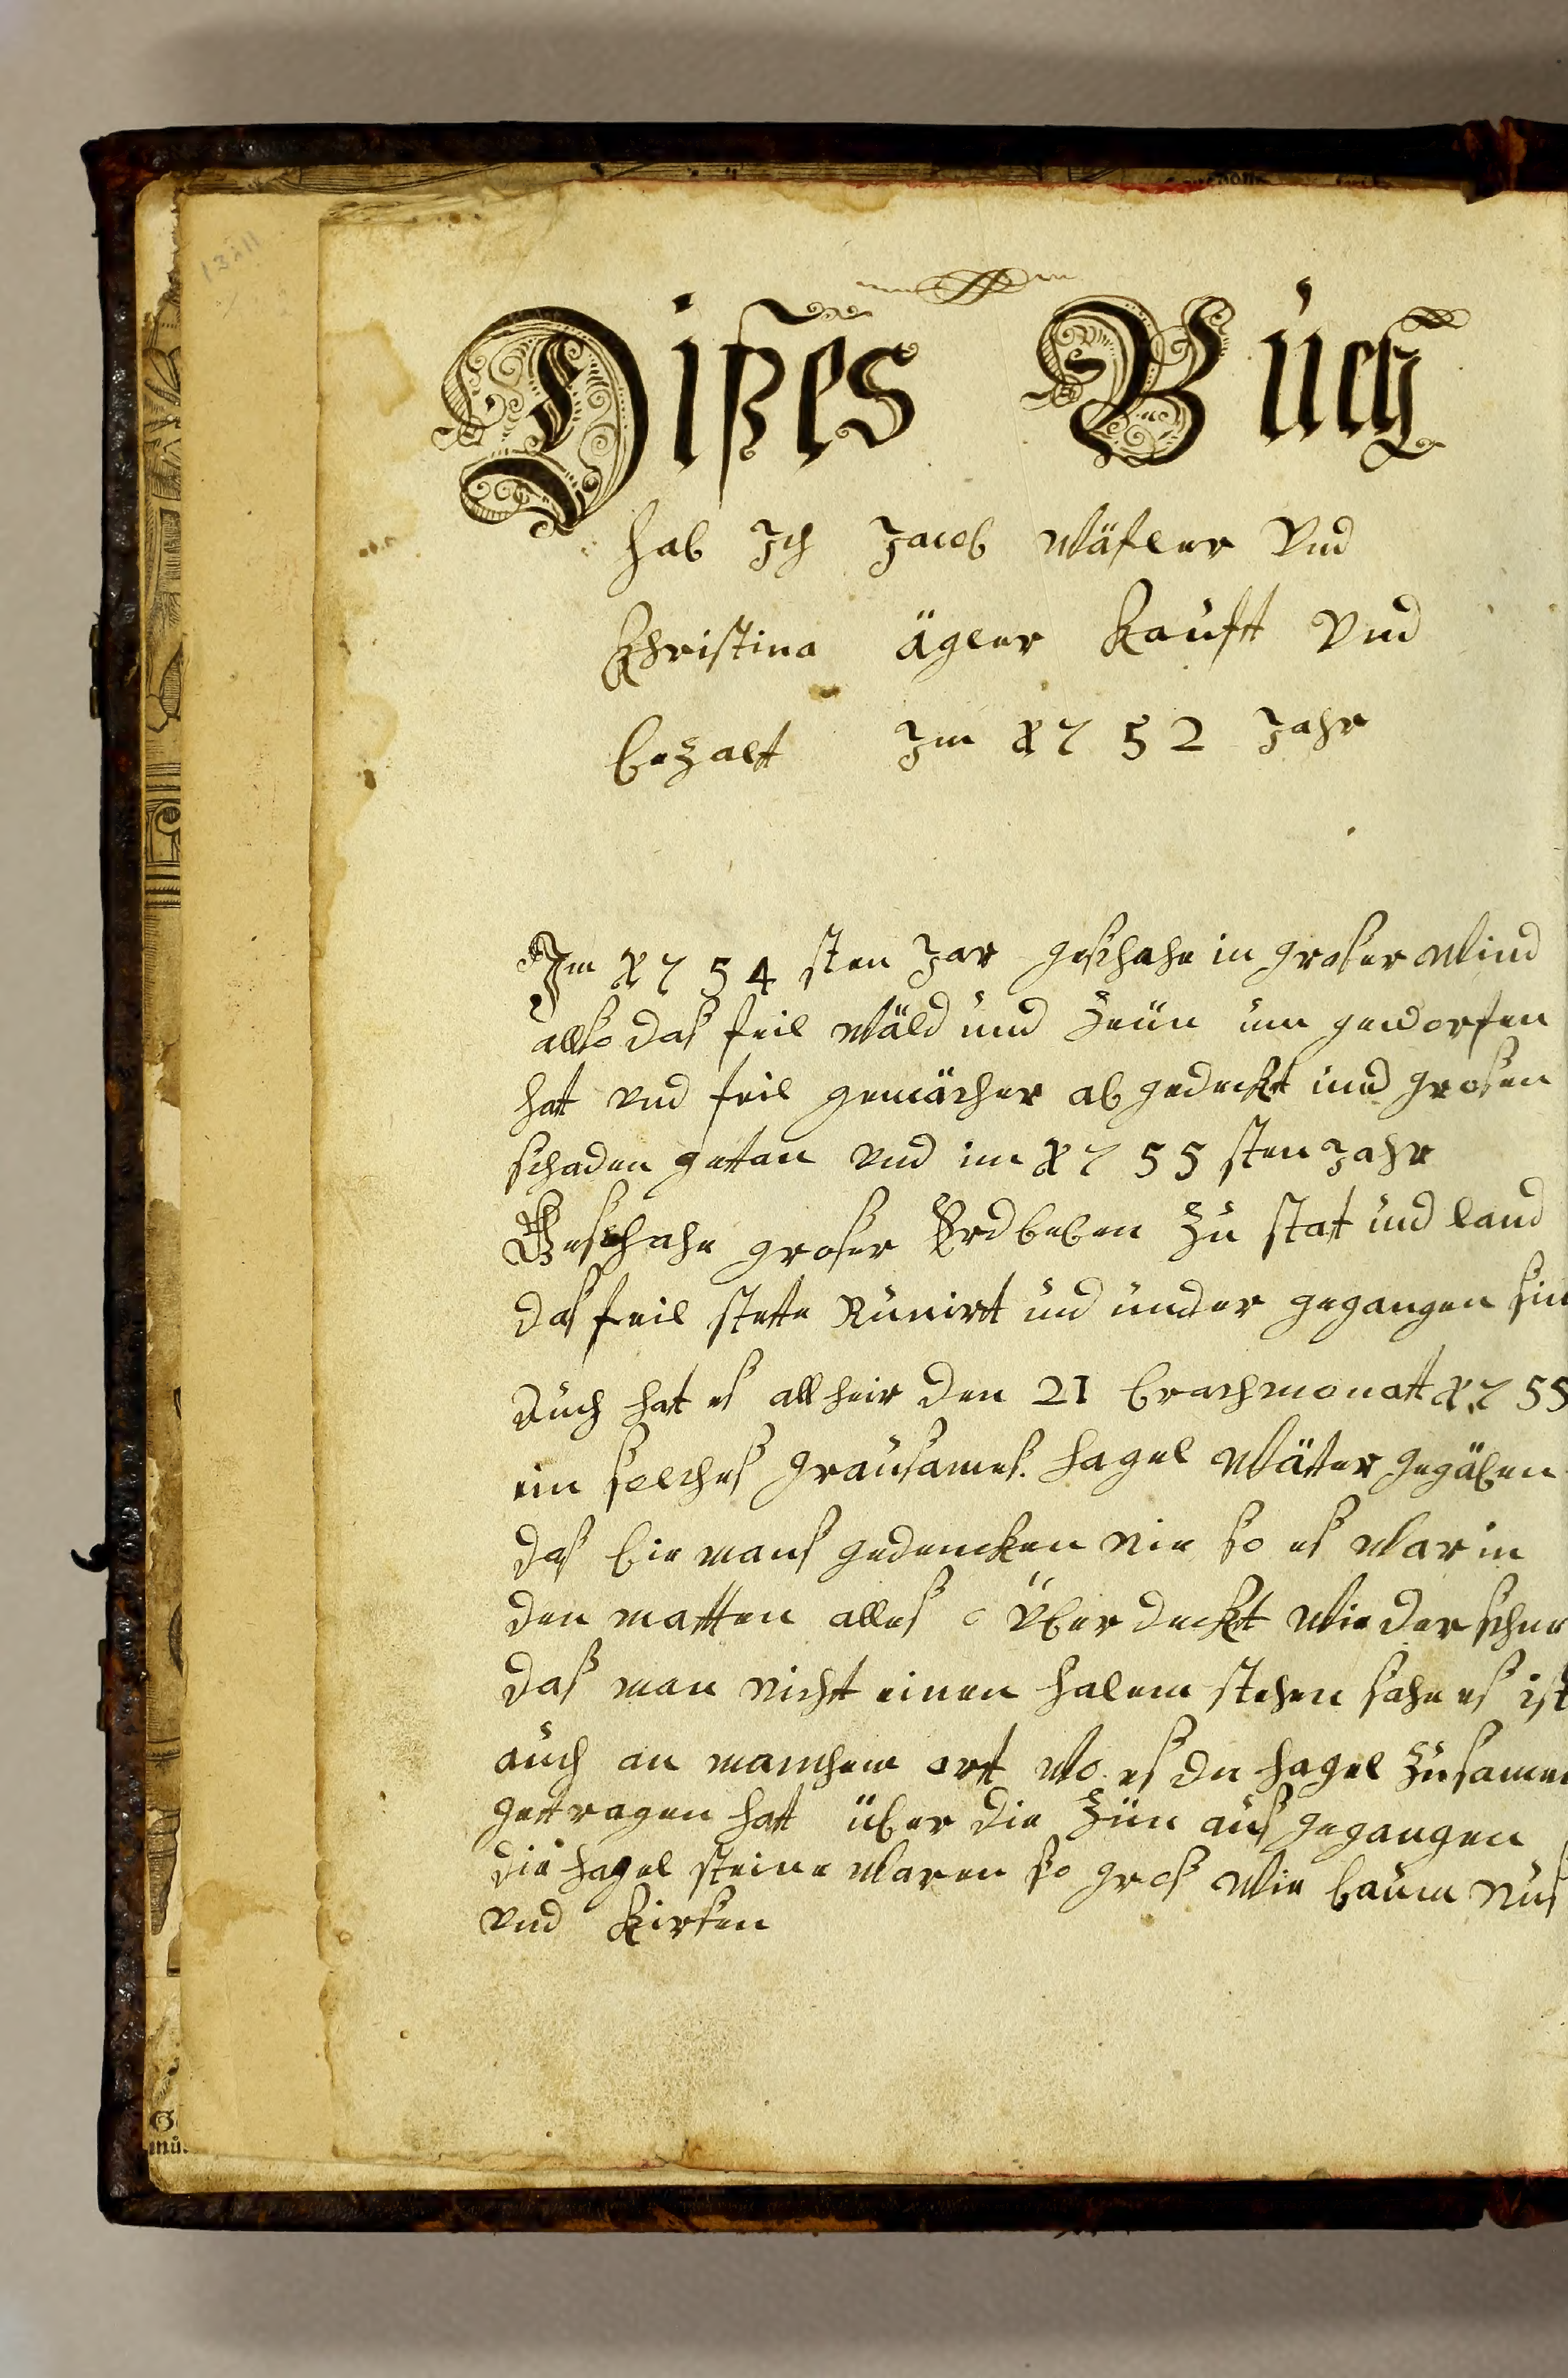 Dißes Buch
hab Ich Jacob Wäfler Vnd
Christina Ägler kauft Vnd
bezalt Im 1752 Jahr
Im 1754 sten Jar geschahe in groser Wind
allso das feil Wäld und Zeün um geworfen
hat vnd feil gemächer ab gedeckt und grosen
schaden getan vnd im 1755 sten Jahr
Geschahe groser Erdbeben Zu stat und land
das feil stette Runirt und under gegangen sin
Auch hat es all heir den 21 brachmonatt 1755
ein solches grausames hagel Wätter gegäben
das bie mans gedencken nie so es War in
den matten alles Über deckt Wie der schne
das man nicht einen halem stehen sahe es ist
auch an manchem ort Wo es den hagel Zusamen
gettragen hatt über die Zün aus gegangen
die hagel steine Waren so gros Wie baum Nus
vnd kirsen
G
mü